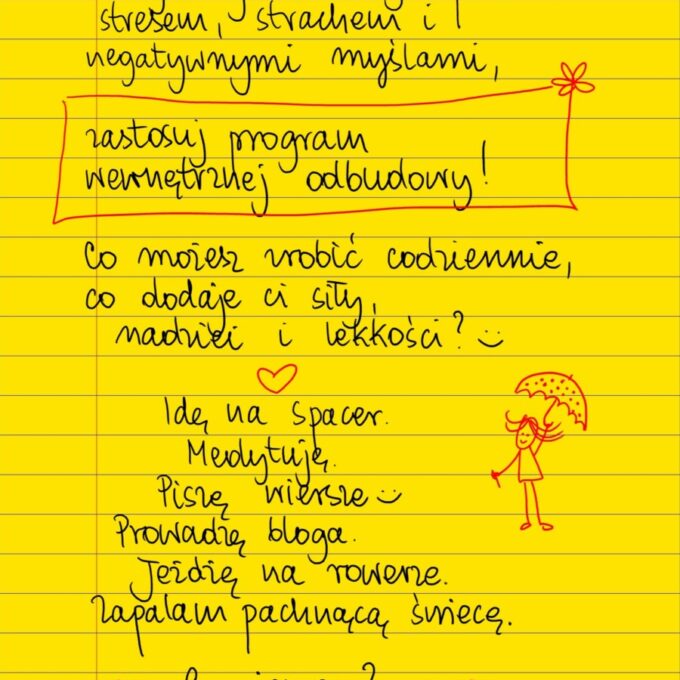 stresem, strachem i
negatywnymi myślami,
zastosuj program
wewnętrznej odbudowy!
Co możesz zrobić codziennie,
co dodaje ci siły,
nadziei i lekkości?
Idę na spacer.
Medytuję.
Piszę wiersze
Prowadzę bloga.
Jeżdżę na rowerze.
Zapalam pachnącą świecę.